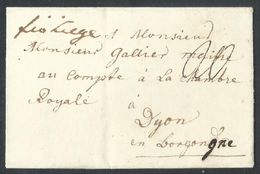 fco Liege A Monsieur
Monsieur Gallier maitre
au Compte à La chambre
Royale
à
Dyon
en borgongne